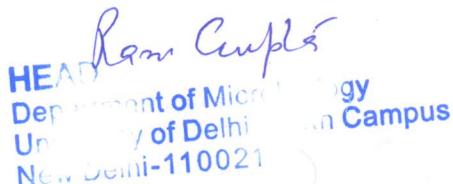 Rani Gupta
HEAD
Department of Microbiology
University of Delhi South Campus
New Delhi-110021